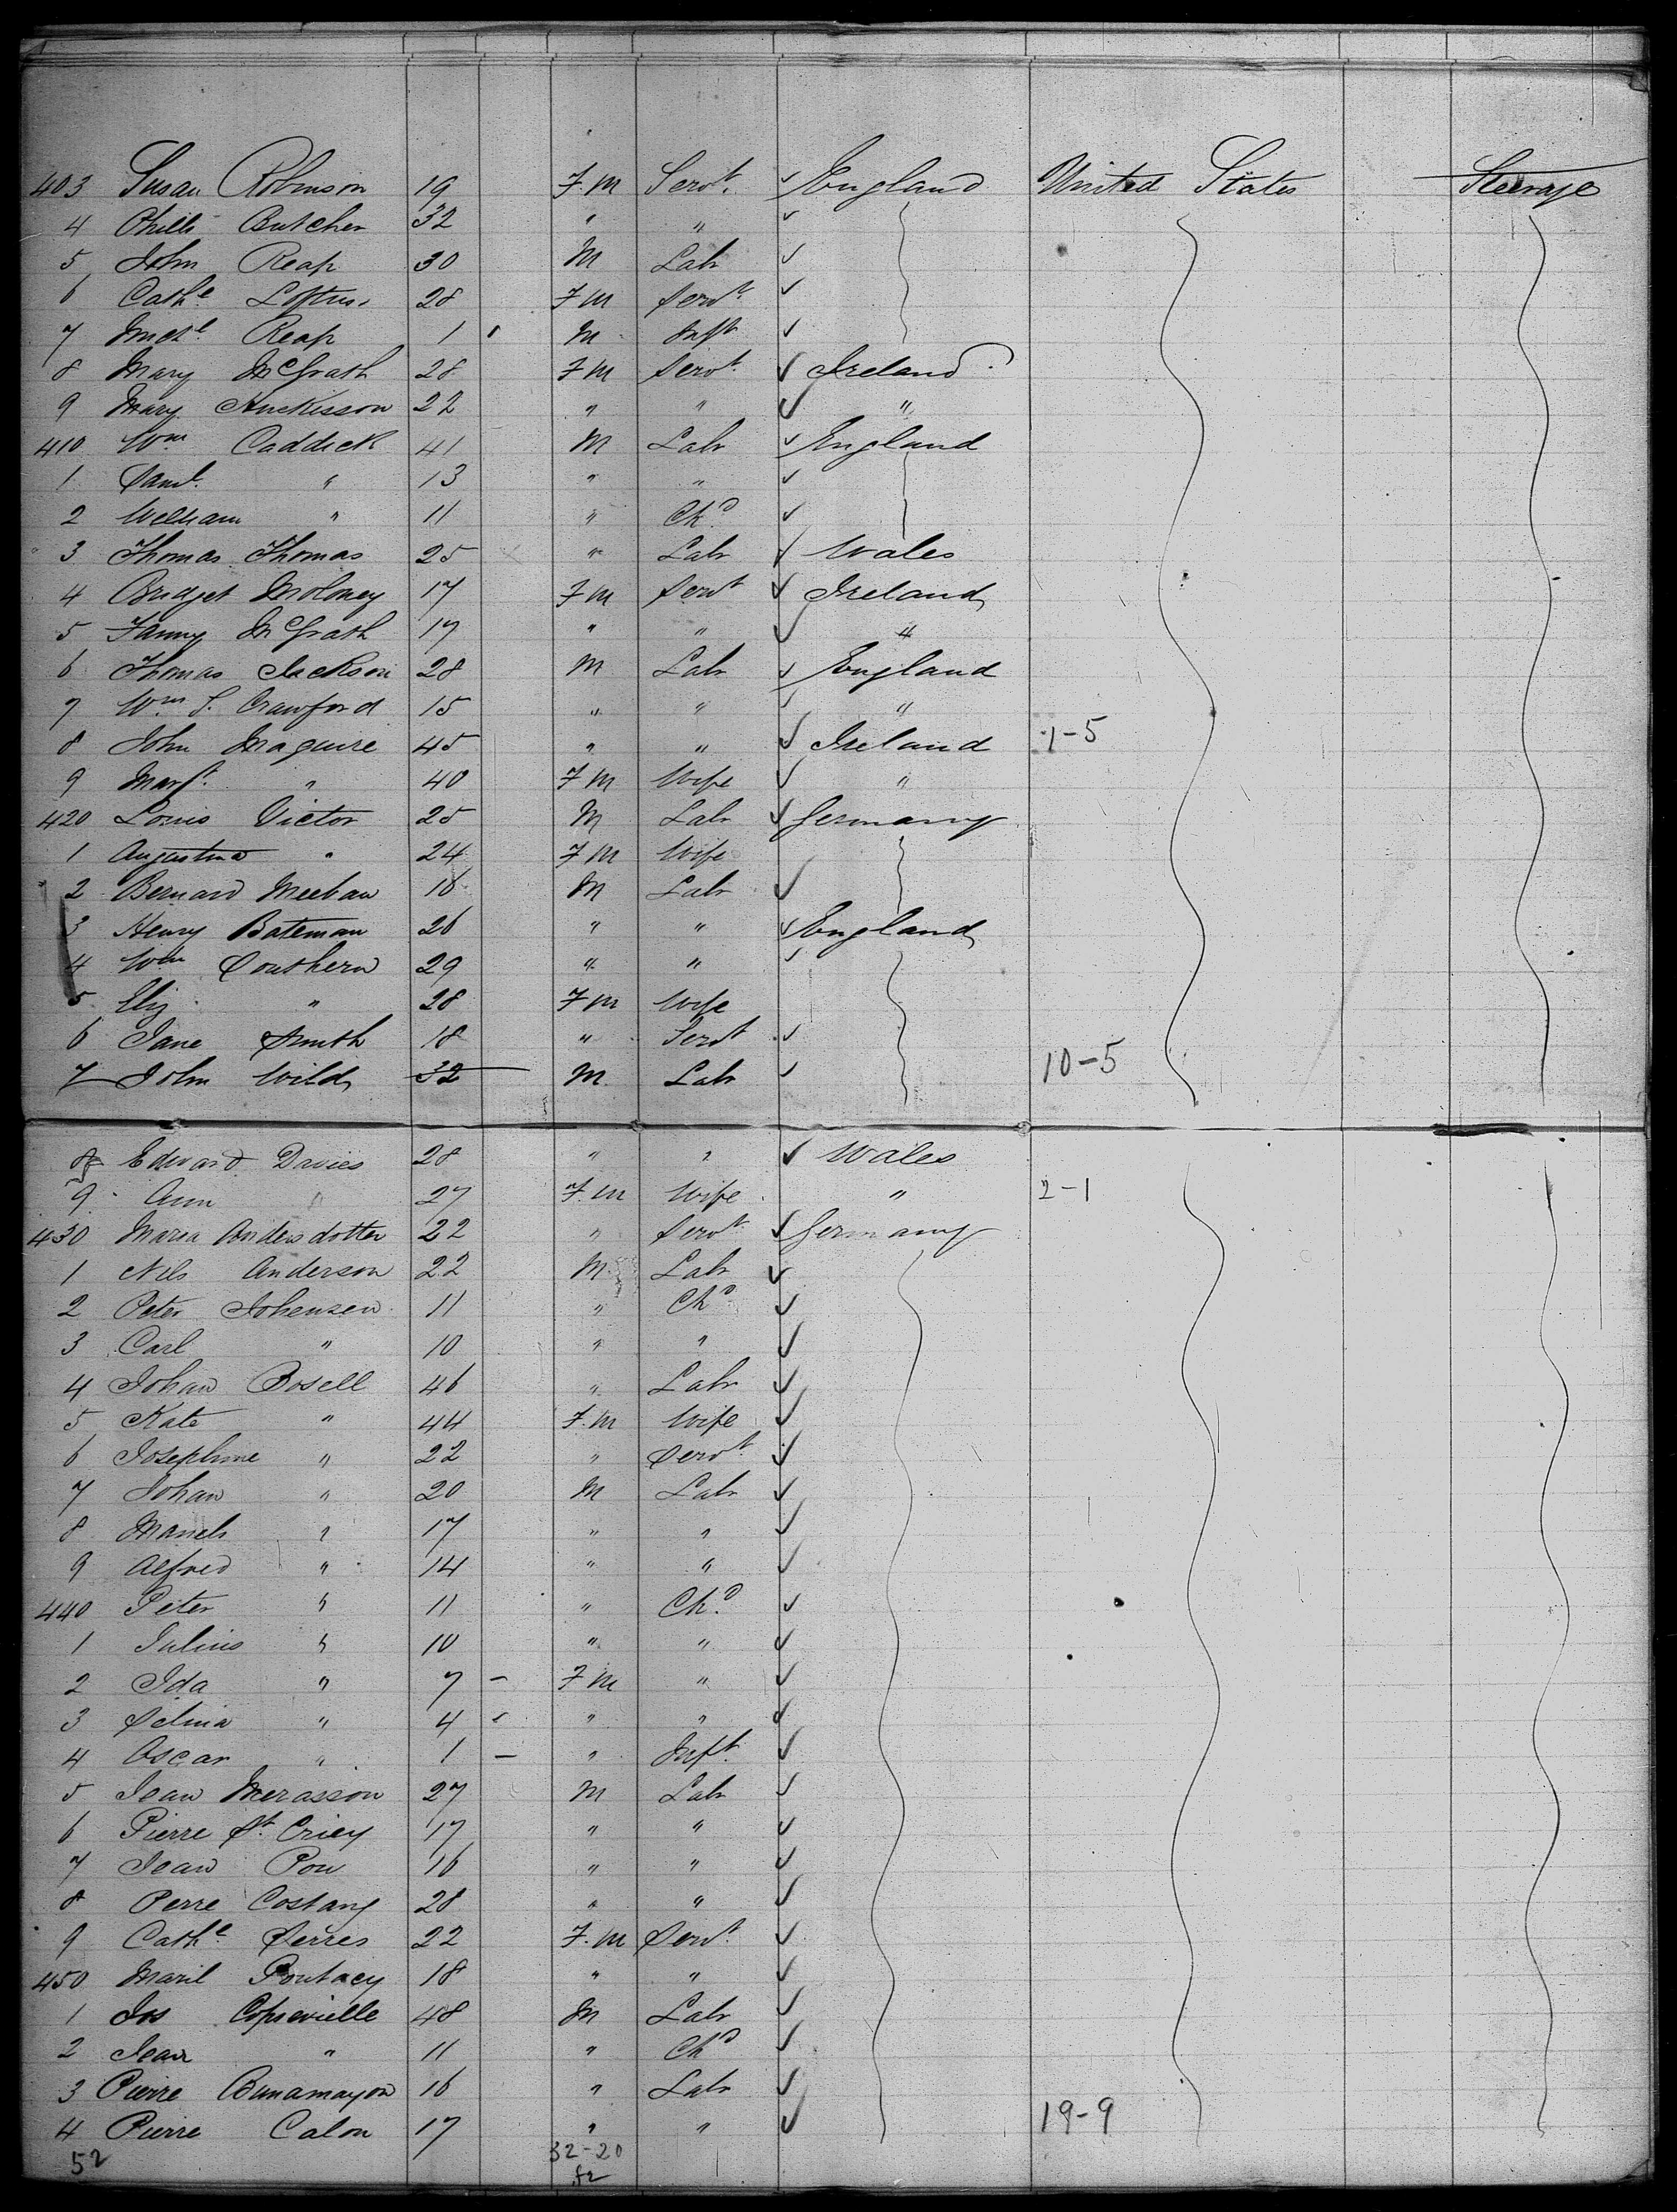 403 Susan Robinson 19 F m Servt. ✓ England United States Steerage
4 Butcher 32 " " ✓
5 John Reap 30 M Labr ✓
6 Cathe Loftus 28 F m Servt ✓
7 Michl Reap 1 M Inft ✓
8 Mary McGrath 28 F m Servt ✓ Ireland
9 Mary 22 " " ✓ "
410 Wm Caddick 41 M Labr ✓ England
1 Saml. " 13 " " ✓
2 William " 11 " Chd ✓
3 Thomas Thomas 25 " Labr ✓ Wales
4 Bridget Moloney 17 F m Servt ✓ Ireland
5 Fanny McGrath 17 " " ✓ "
6 Thomas Jackson 28 M Labr ✓ England
7 Wm S. Crawford 15 " " ✓ "
8 John Maguire 45 " " ✓ Ireland 1-5
9 Margt. " 40 F m Wife ✓ "
420 Louis Victor 25 M Labr ✓ Germany
1 Augustina " 24 F m Wife
2 Bernard Meehan 18 M Labr ✓
3 Henry Bateman 26 " " ✓ England
4 Wm Southern 29 " " ✓
5 Eliz " 28 F m Wife
6 Jane Smith 18 " Servt ✓
7 John Wild 32 M Labr ✓ 10-5
8 Edward Davies 28 " " ✓ Wales
9 Ann " 27 F. m Wife " 2-1
430 Maria Andersdotter 22 " Servt ✓ Germany
1 Nils Anderson 22 M Labr ✓
2 Peter Johensen 11 " Chd ✓
3 Carl " 10 " " ✓
4 Johan Bosell 46 " Labr ✓
5 Kate " 44 F. m Wife ✓
6 Josephine " 22 " Servt ✓
7 Johan " 20 M Labr ✓
8 " 17 " " ✓
9 Alfred " 14 " " ✓
440 Peter " 11 " Chd ✓
1 Julius " 10 " " ✓
2 Ida " 7 - F m " ✓
3 Selina " 4 " " ✓
4 Oscar " 1 - " Inft. ✓
5 Jean Merasson 27 M Labr ✓
6 Pierre St. Criey 17 " " ✓
7 Jean Pou 16 " " ✓
8 Perre Costang 28 " " ✓
9 Cathe Serres 22 F. m Servt. ✓
450 Maril Poutacy 18 " " ✓
1 Jos 48 M Labr ✓
2 Jean " 11 " Chd ✓
3 Pierre Bunamayon 16 " Labr ✓
4 Pierre Calon 17 " " ✓ 19-9
52 32-20
52